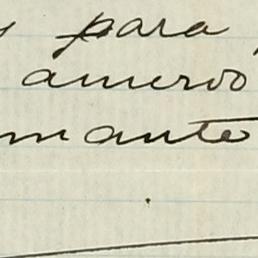 y para
amervo
mante